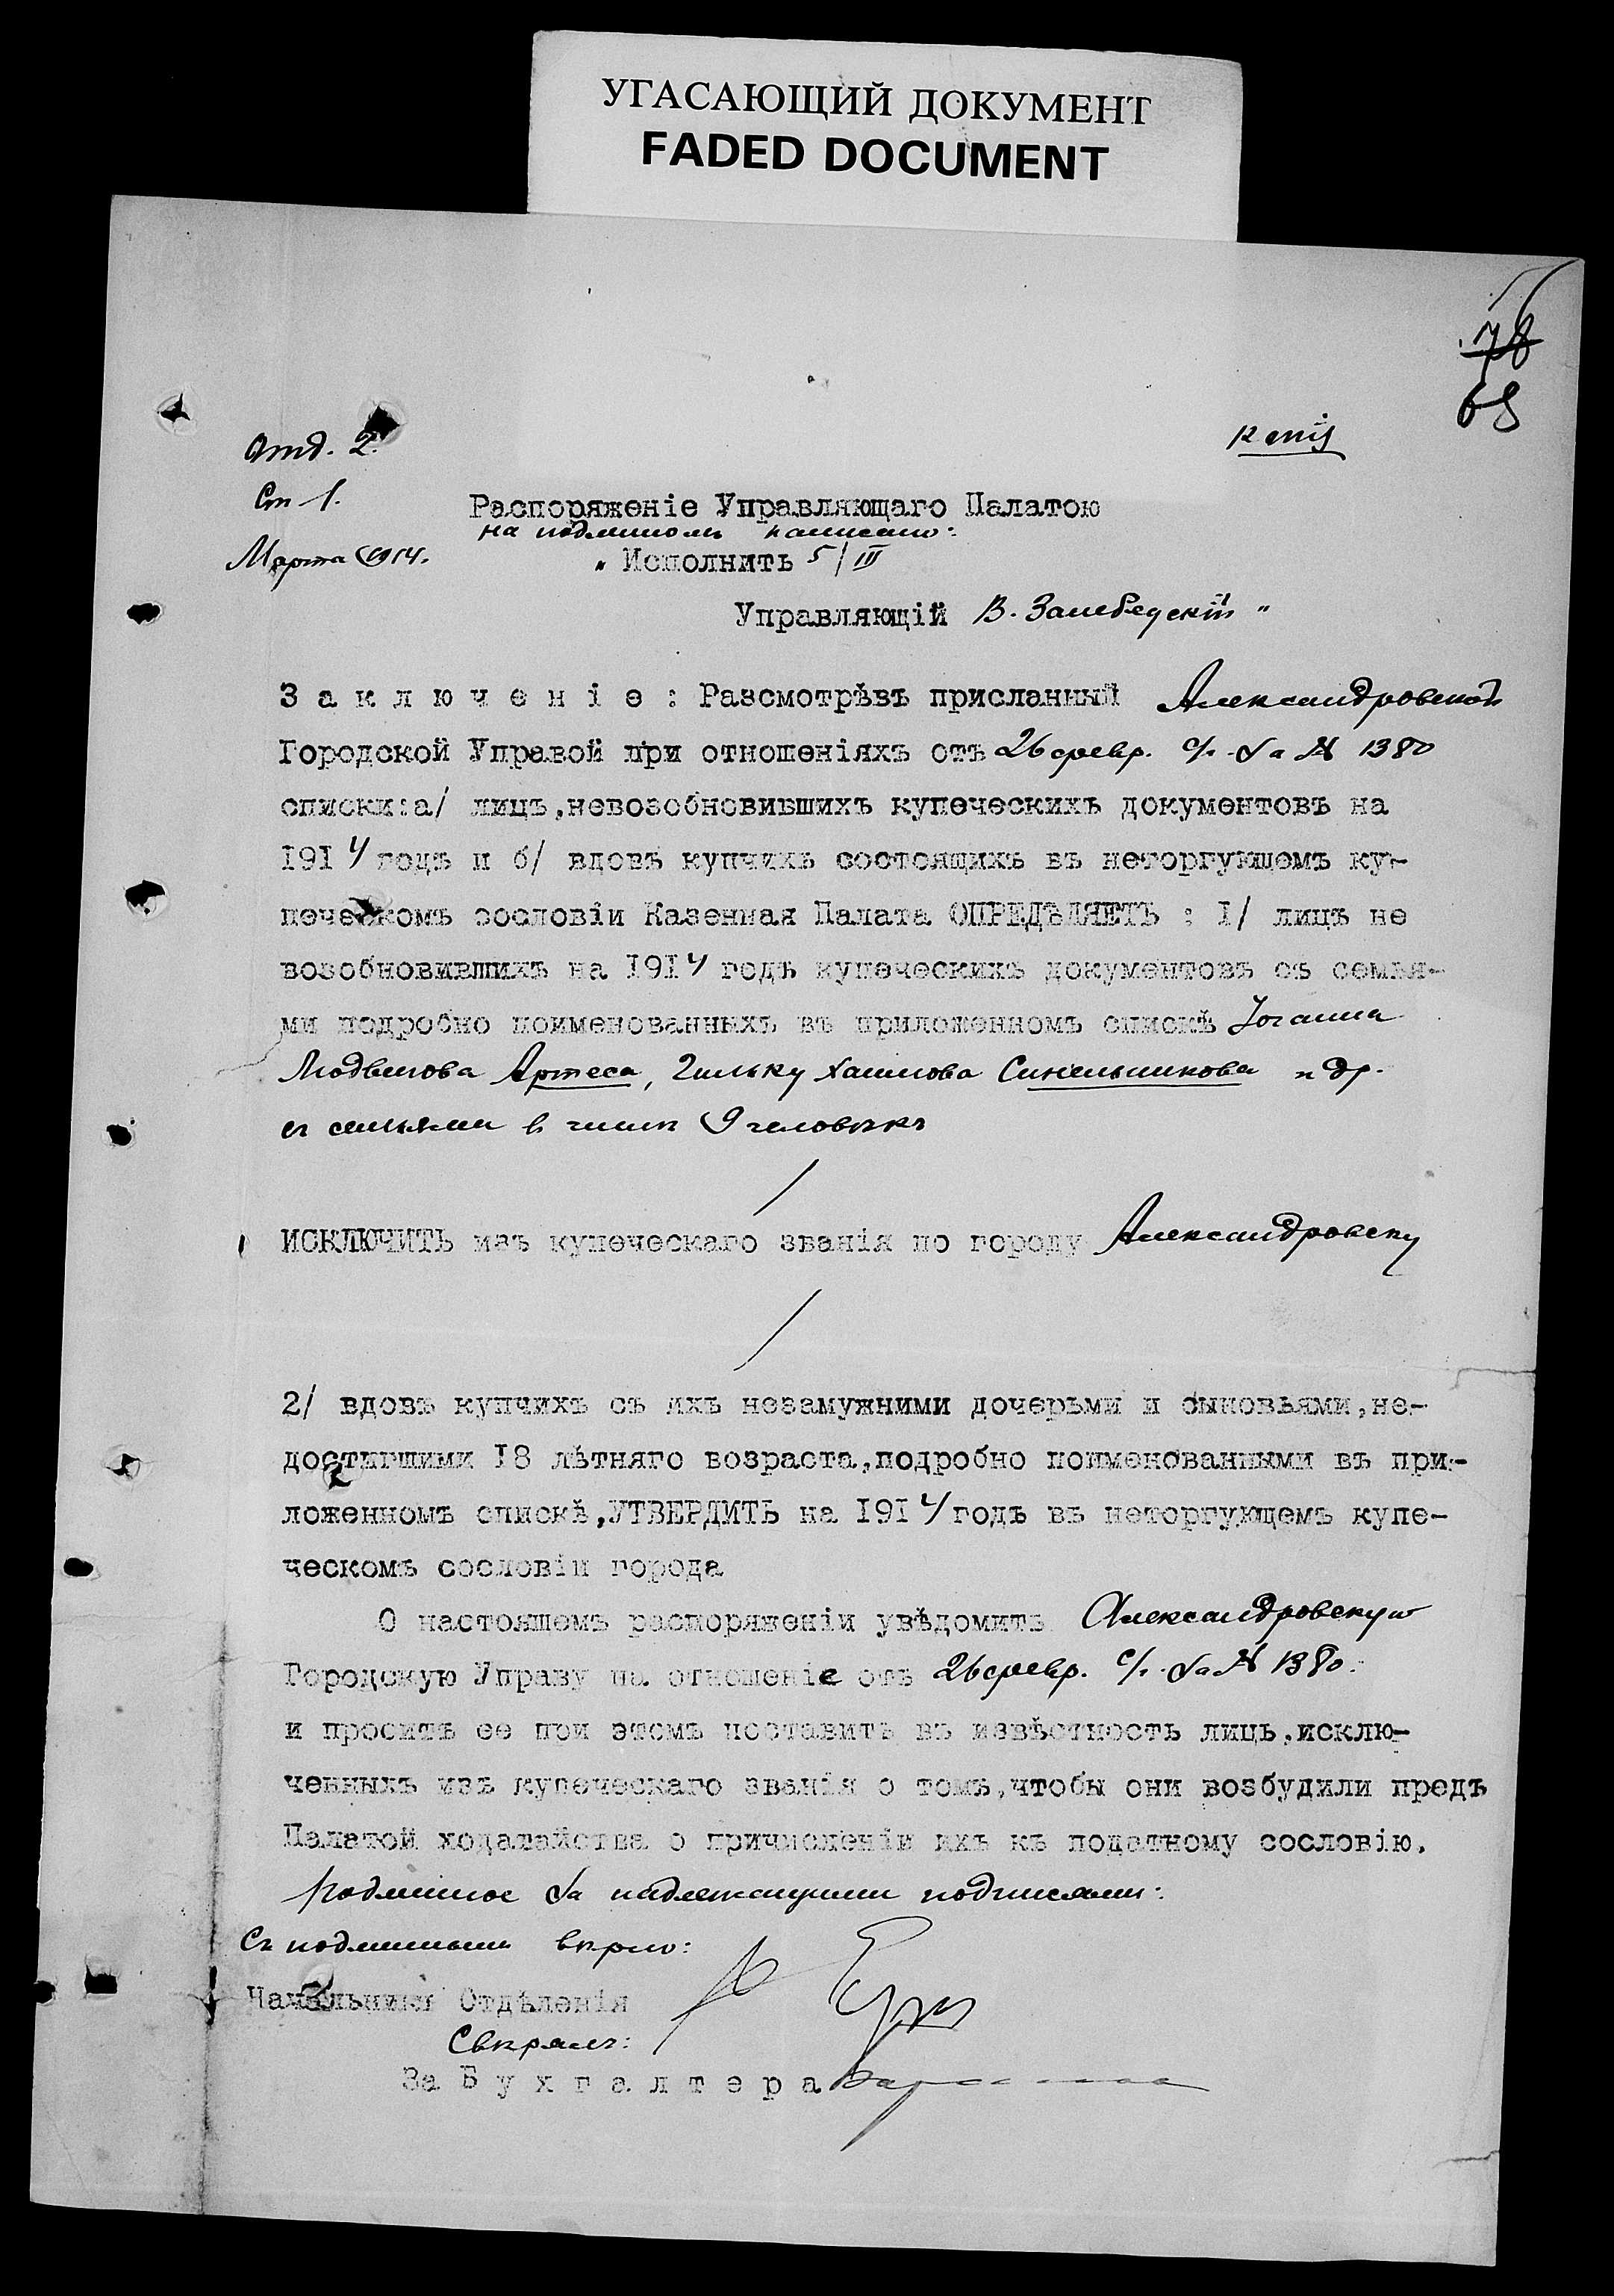 УГАСАЮЩИЙ ДОКУМЕНТ
FADED DOCUMENT
78
68
Отд. 2.
Копія
Ст 1.
Распоряженіе Управляющаго Палатою
на подлинномъ написано:
Марта 1914.
„ Исполнить 5/III
Управляющій В. "
З а к л ю ч е н і е : Разсмотрѣвъ присланный Александровской
Городской Управой при отношеніяхъ отъ 26 февр. с/г. за № 1380
списки:а/ лицъ,невозобновившихъ купеческихъ документовъ на
1914 годъ и б/ вдовъ купчихъ состоящихъ въ неторгующемъ ку-
печескомъ сословіи Казенная Палата ОПРЕДѢЛЯЕТЪ : I/ лицъ не
возобновившихъ на 1914 годъ купеческихъ документовъ съ семья-
ми подробно поименованныхъ въ приложенномъ спискѣ Іоганна
Людвигова Артеса, Гильку Хаимова Синельникова и др.
съ семьями въ числѣ 9 человѣкъ
ИСКЛЮЧИТЬ изъ купеческаго званія по городу Александровску
2/ вдовъ купчихъ съ ихъ незамужними дочерьми и сыновьями,не-
достигшими 18 лѣтняго возраста,подробно поименованными въ при-
ложенномъ спискѣ,УТВЕРДИТЬ на 1914 годъ въ неторгующемъ купе-
ческомъ сословіи города
О настоящемъ распоряженіи увѣдомить Александровскую
Городскую Управу на отношеніе отъ 26 февр. с/г. за № 1380.
и просить ее при этомъ поставить въ извѣстность лицъ,исклю-
ченныхъ изъ купеческаго званія о томъ,чтобы они возбудили предъ
Палатой ходатайства о причисленіи ихъ къ податному сословію.
Подлинное за надлежащими подписями:
Съ подлиннымъ вѣрно:
Начальникъ Отдѣленія
Свѣрялъ:
За Б у х г а л т е р а